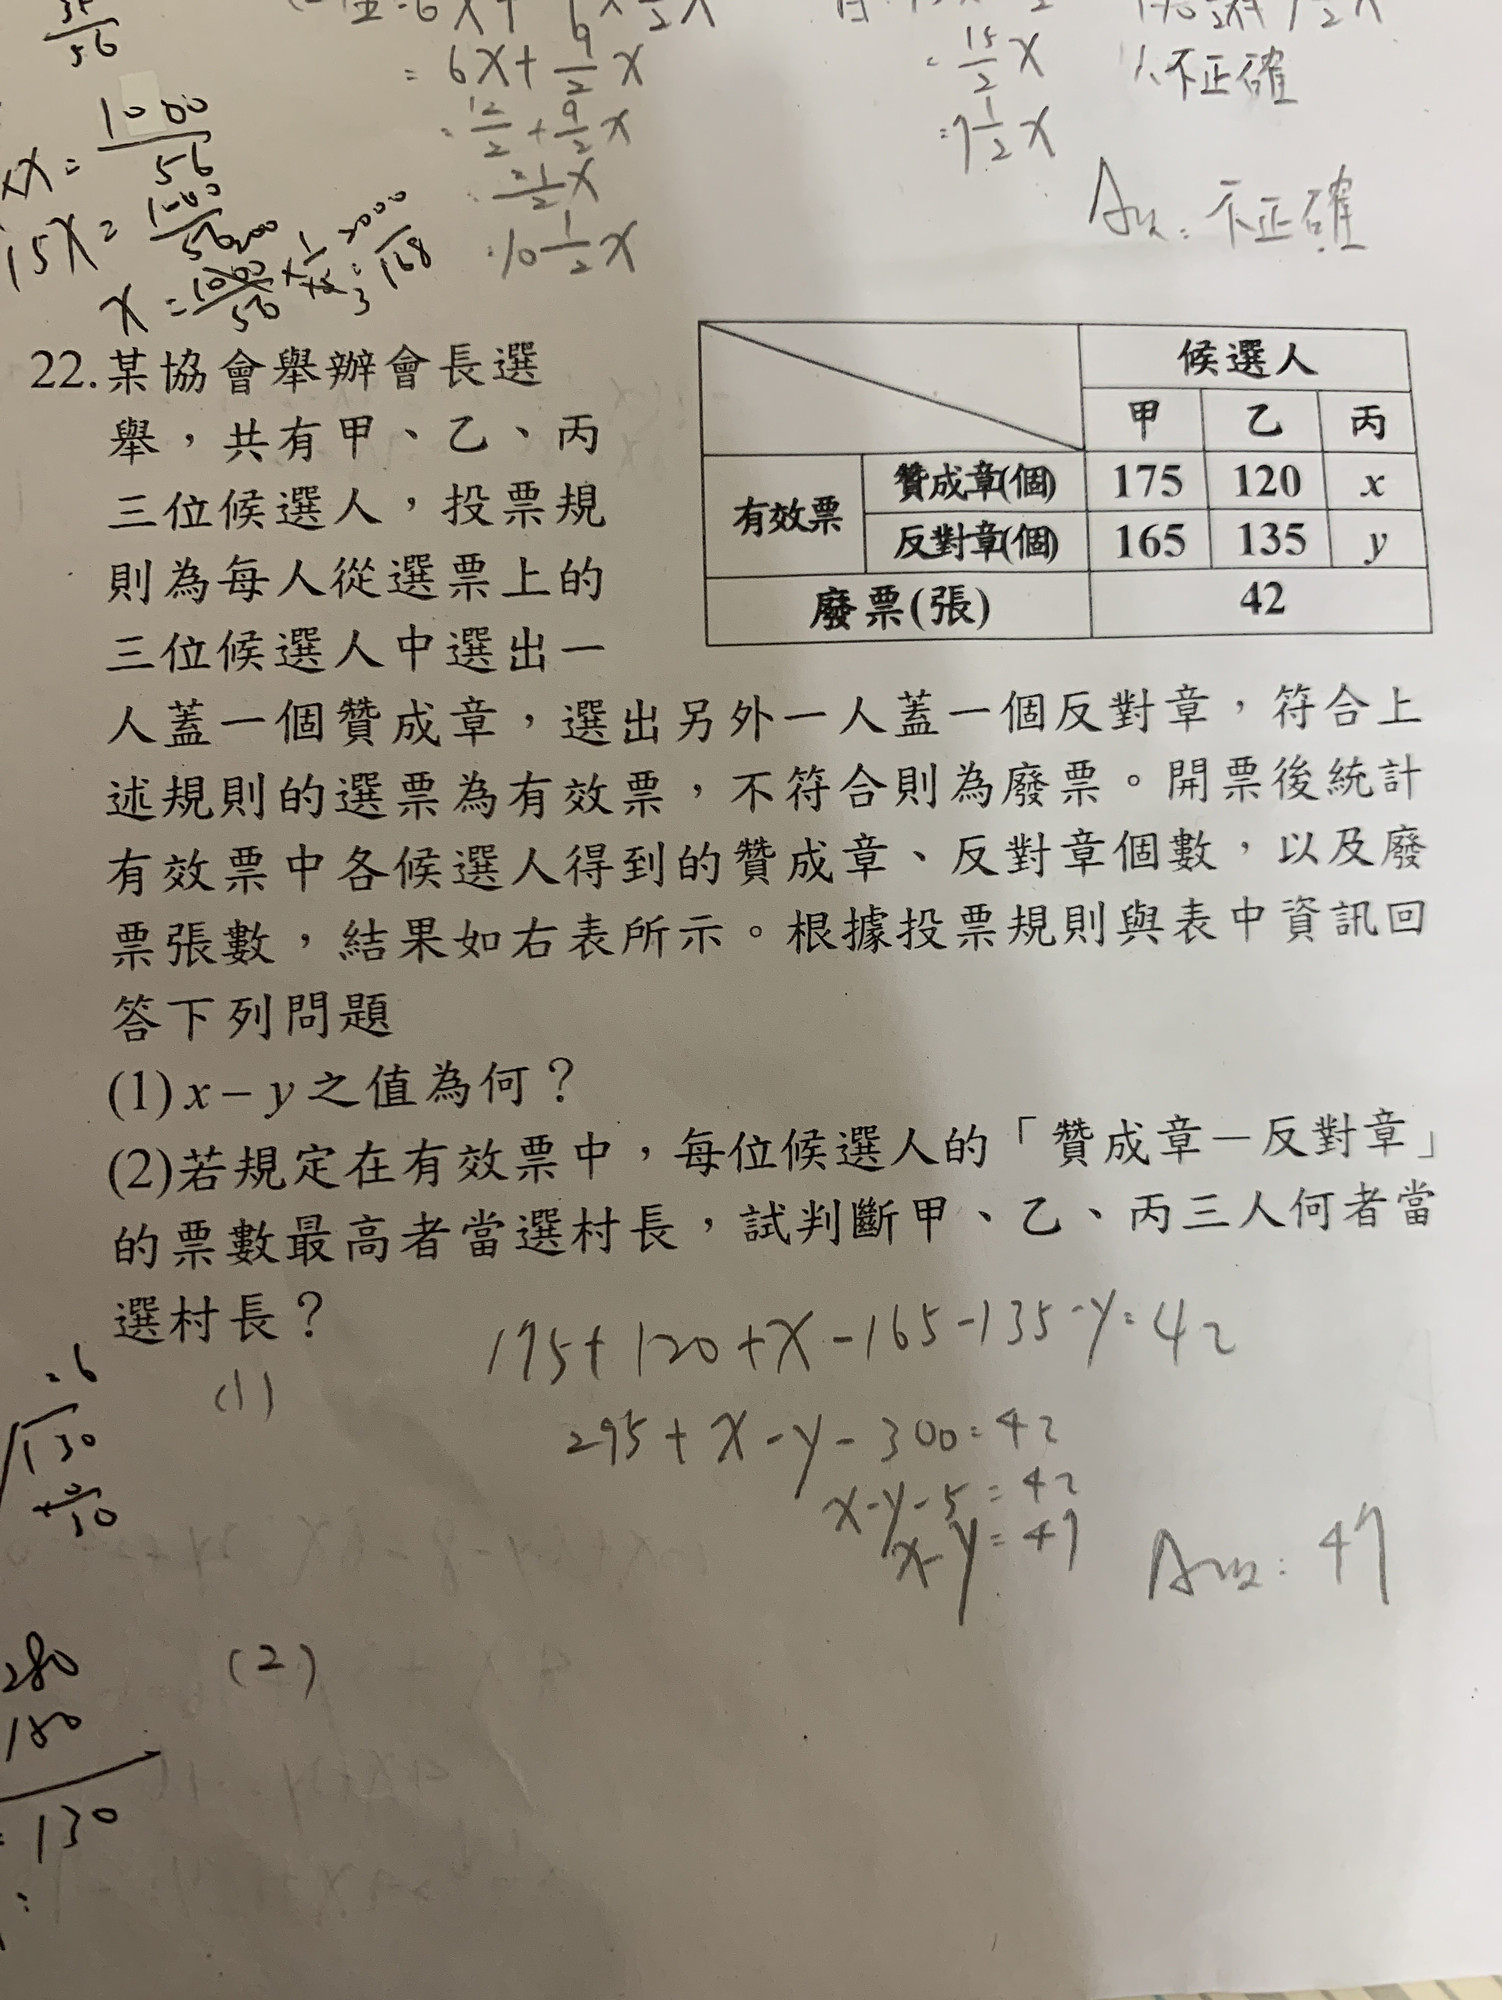 = 6x + 9/2 x
= 12/2 + 9/2 x
= 21/2 x
= 10 1/2 x
= 15/2 x
= 7 1/2 x
不正確
Ans: 不正確
1000
56
15x = 1000/56
22. 某協會舉辦會長選
舉，共有甲、乙、丙
三位候選人，投票規
則為每人從選票上的
三位候選人中選出一
人蓋一個贊成章，選出另外一人蓋一個反對章，符合上
述規則的選票為有效票，不符合則為廢票。開票後統計
有效票中各候選人得到的贊成章、反對章個數，以及廢
票張數，結果如右表所示。根據投票規則與表中資訊回
答下列問題
候選人
甲 乙 丙
有效票 贊成章(個) 175 120 x
反對章(個) 165 135 y
廢票(張) 42
(1) x – y 之值為何？
(2)若規定在有效票中，每位候選人的「贊成章－反對章」
的票數最高者當選村長，試判斷甲、乙、丙三人何者當
選村長？
(1) 175+120+x-165-135-y=42
295+x-y-300=42
x-y-5=42
x-y=47 Ans: 47
(2)
130
280
180
130